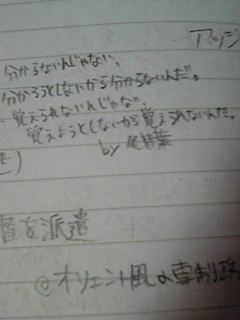 アッシ
分からないんじゃない、
分かろうとしないから分からないんだ。
覚えられないんじゃな
覚えようとしないから覚えられないんだ。
by
督を派遣
@オリエント風の専制政